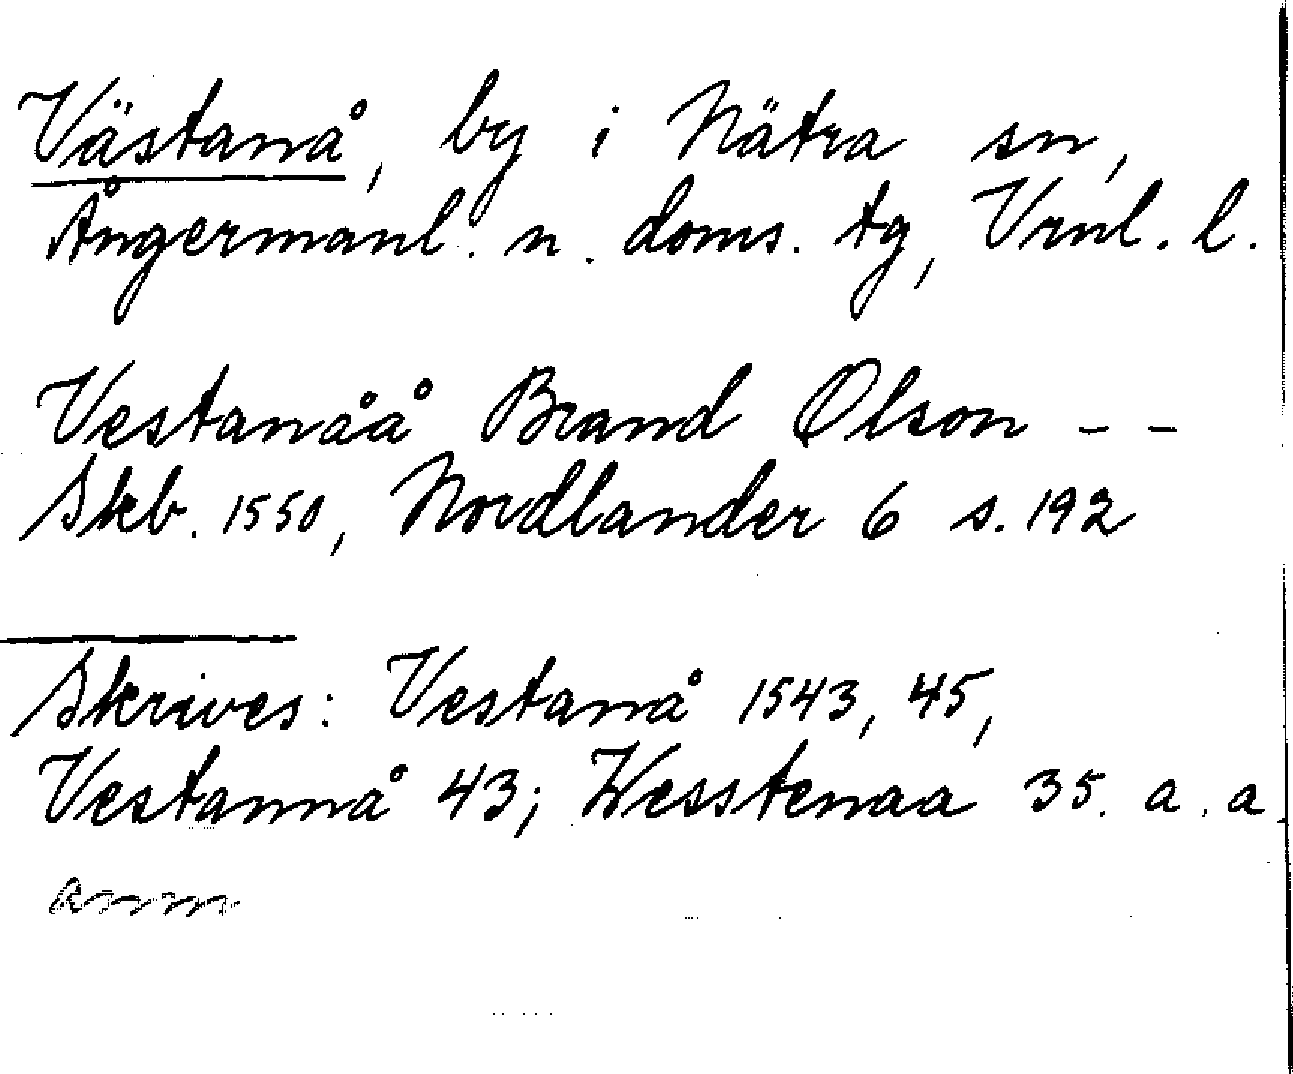 Västanå, by i Nätra sn,
Ångermanl. n. doms. tg, Vrnl. l.
Vestanåå Brand Olson - -
Skb. 1550, Nordlander 6 s. 192
Skrives: Vestanå 1543, 45,
Vestannå 43; Wesstenaa 35. a. a.
anm